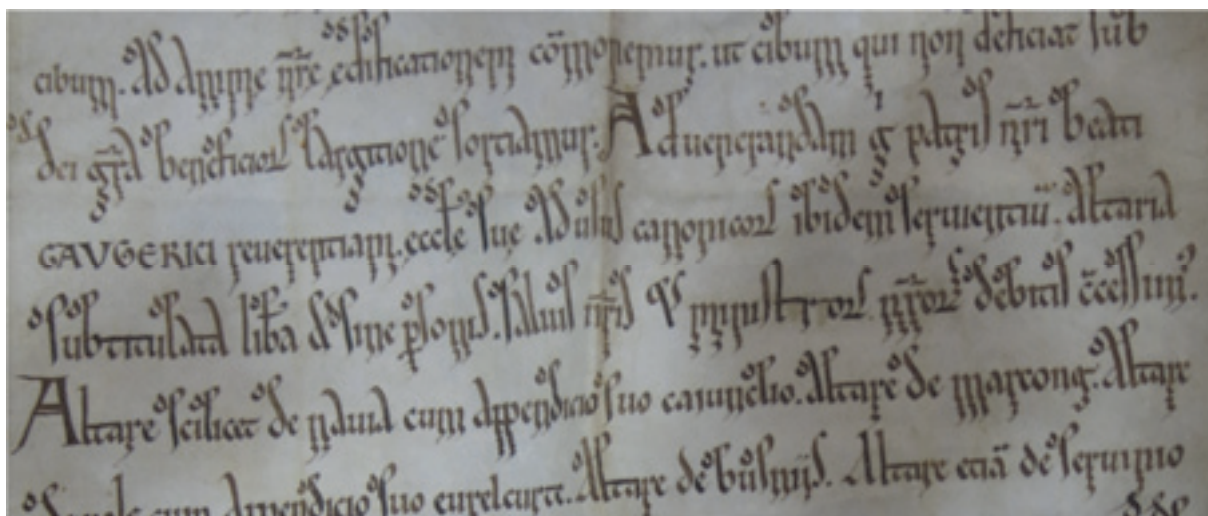 cibum. Ad anime nr̄e edificationem cōmonemur. ut cibum qui non deficiat sub
dei gr̄a beneficior largitione sortiamur. Ad uenerandam g̍ patris nr̄i beati
GAUGERICI reuerentiam. eccl̄e sue Ad usus canonicor ibidem seruientiū. altaria
subtitulata lib̄a & sine p̱sonis. saluis nr̄is ministror nr̄or debitis c̄cessim᾽.
Altare scilicet de nauia cum appendicio suo caiunelio. Altare de marconḡ. Altare
cum appendicio suo eurelcurt. Altare de businijs. Altare etiā de seruinio